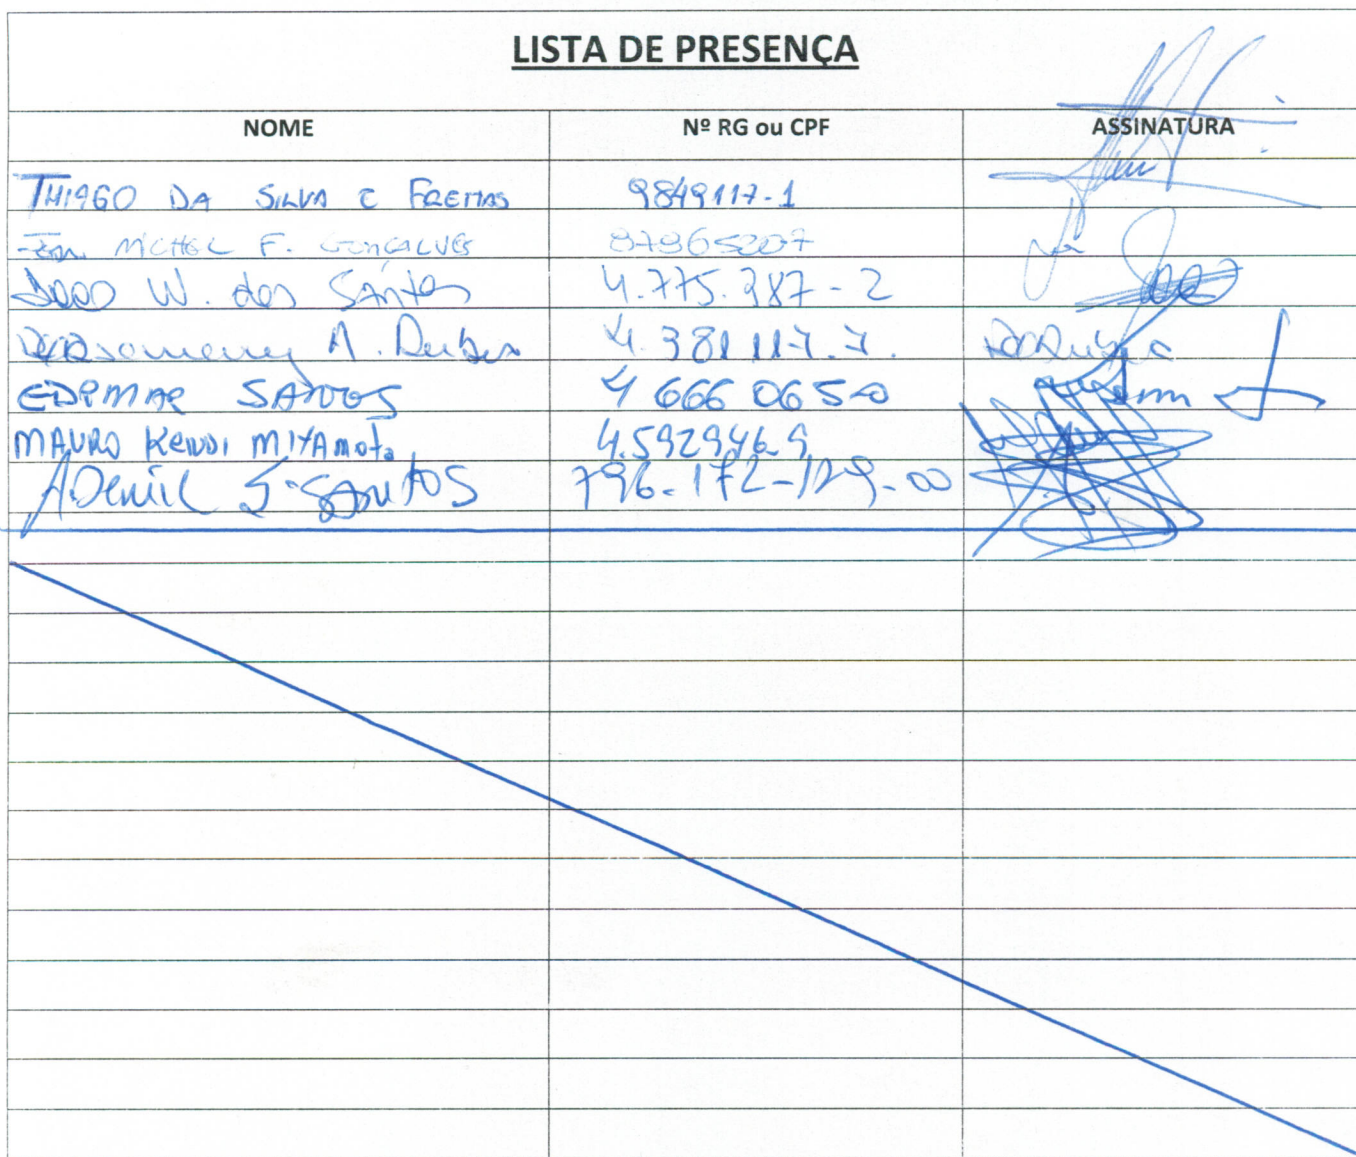 LISTA DE PRESENÇA
NOME Nº RG ou CPF ASSINATURA
THIAGO DA SILVA E FREITAS 9849117-1
MICHEL F. GONÇALVES 87865207
JOÃO W. dos Santos 4.775.987-2
A. 4.381117.7.
EDIMAR SANTOS 4 666 065-0
MAURO KENDI MIYAMOTO 4.592946.9
ADemil S. SANTOS 796.172-129-00